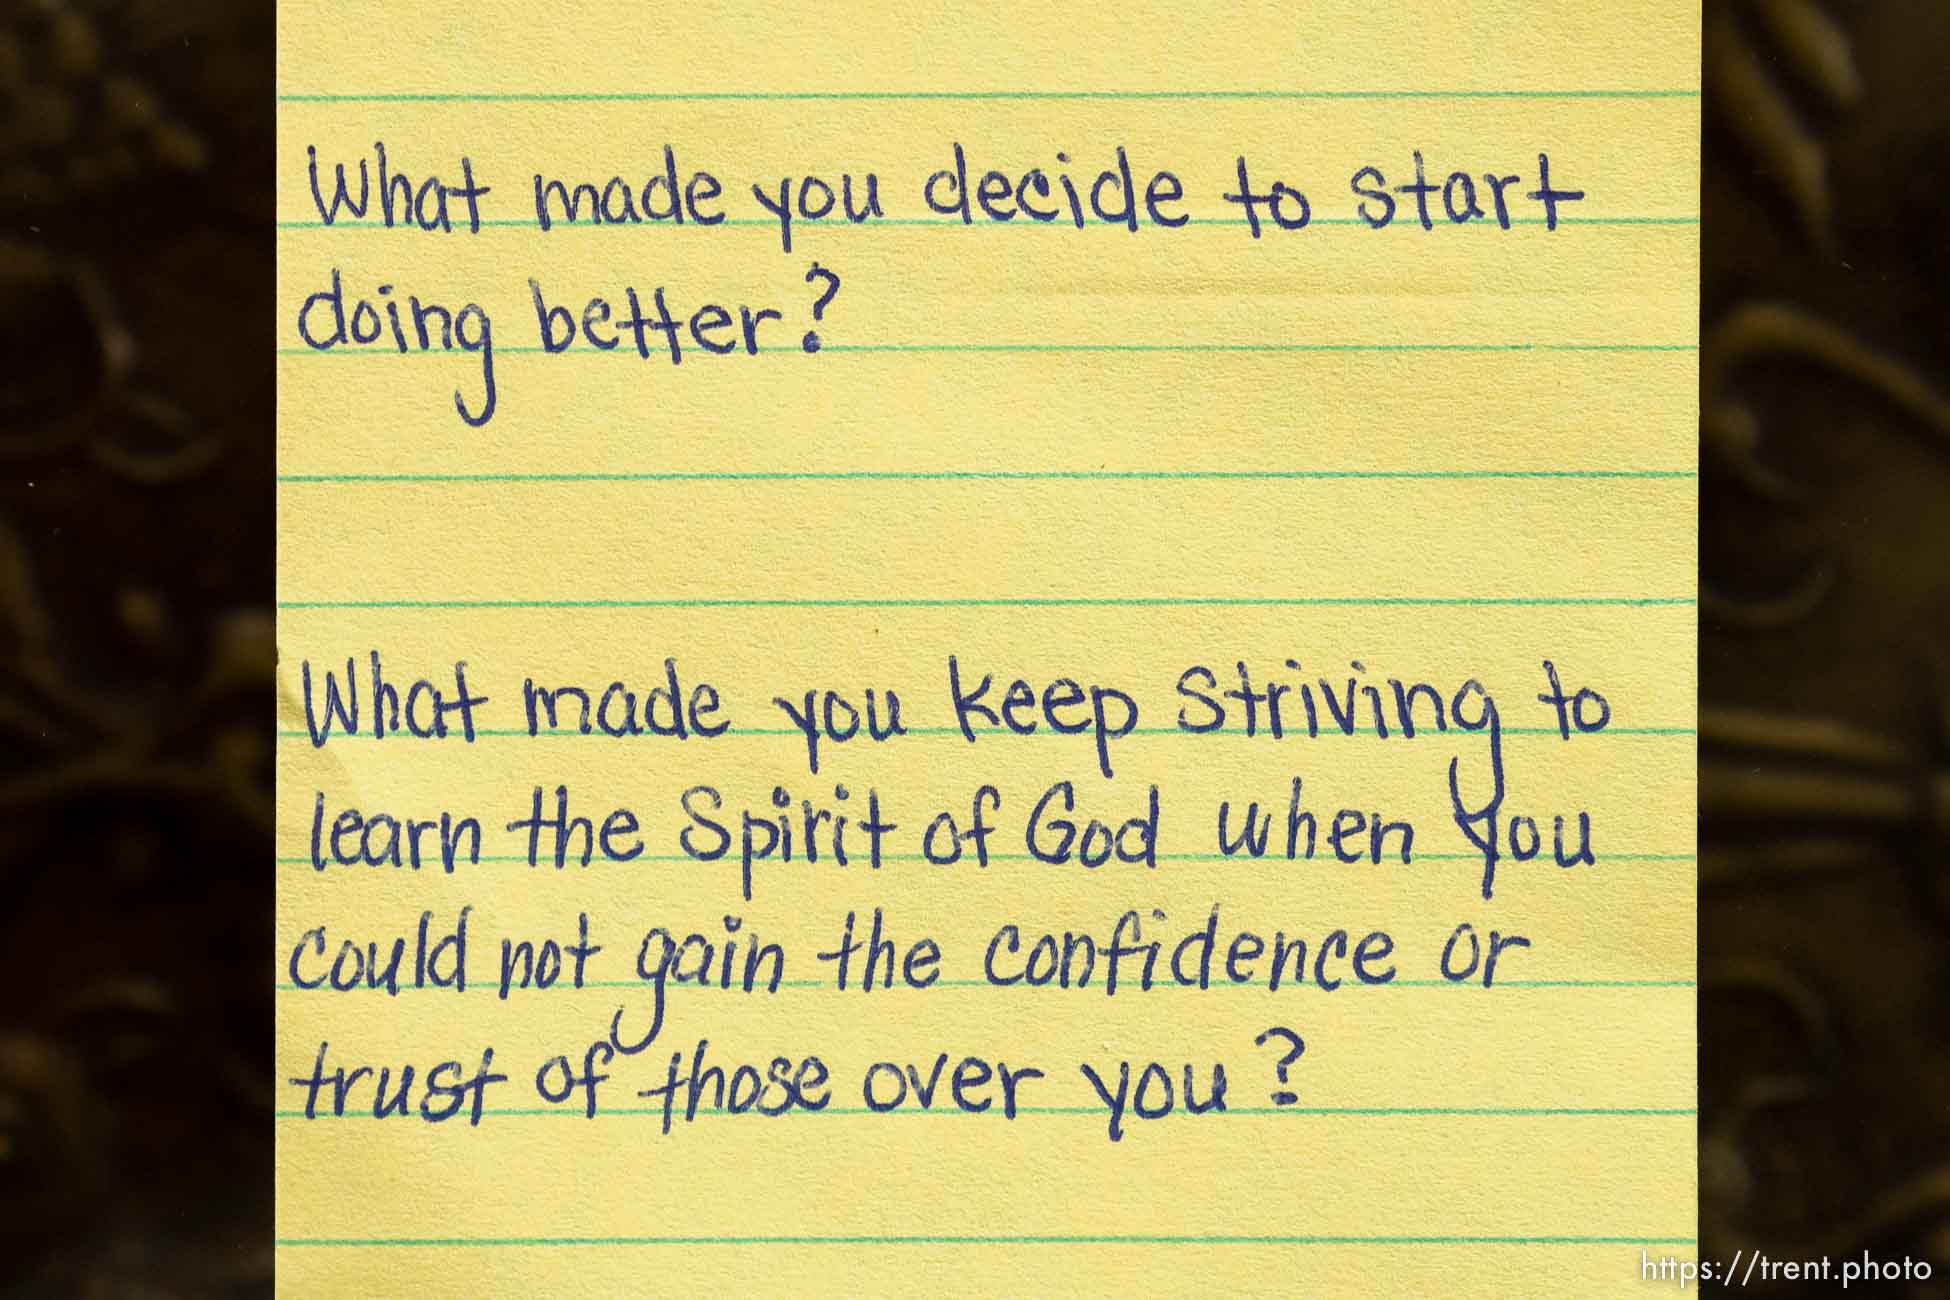 What made you decide to start
doing better?
What made you keep striving to
learn the Spirit of God when you
could not gain the confidence or
trust of those over you?
https://trent.photo